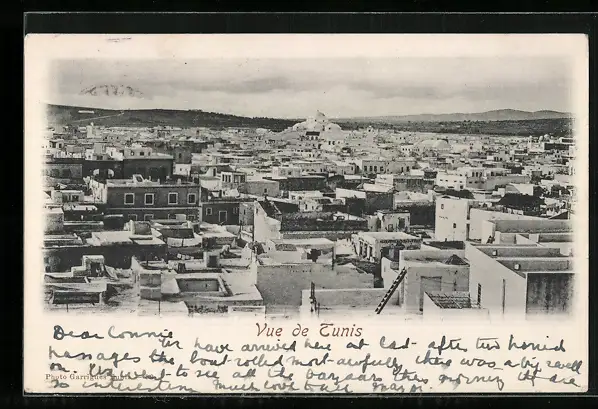 Vue de Tunis
Dear Connie
have arrived here at last - after two horrid
passages the boat rolled most awfully there was a big swell
on. went to see all the bazaars this morning it are
so interesting much love to all
Photo Garrigues